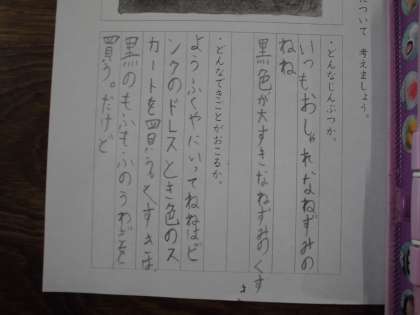 について 考えましょう。
・どんなじんぶつか。
いつもおしゃれなねずみの
ねね
黒色が大すきなねずみのくす
・どんなできごとがおこるか。
ようふくやにいってねねはピ
ンクのドレスとき色のス
カートを買う。くすきは、
黒のもふもふのうわぎを
買う。だけど